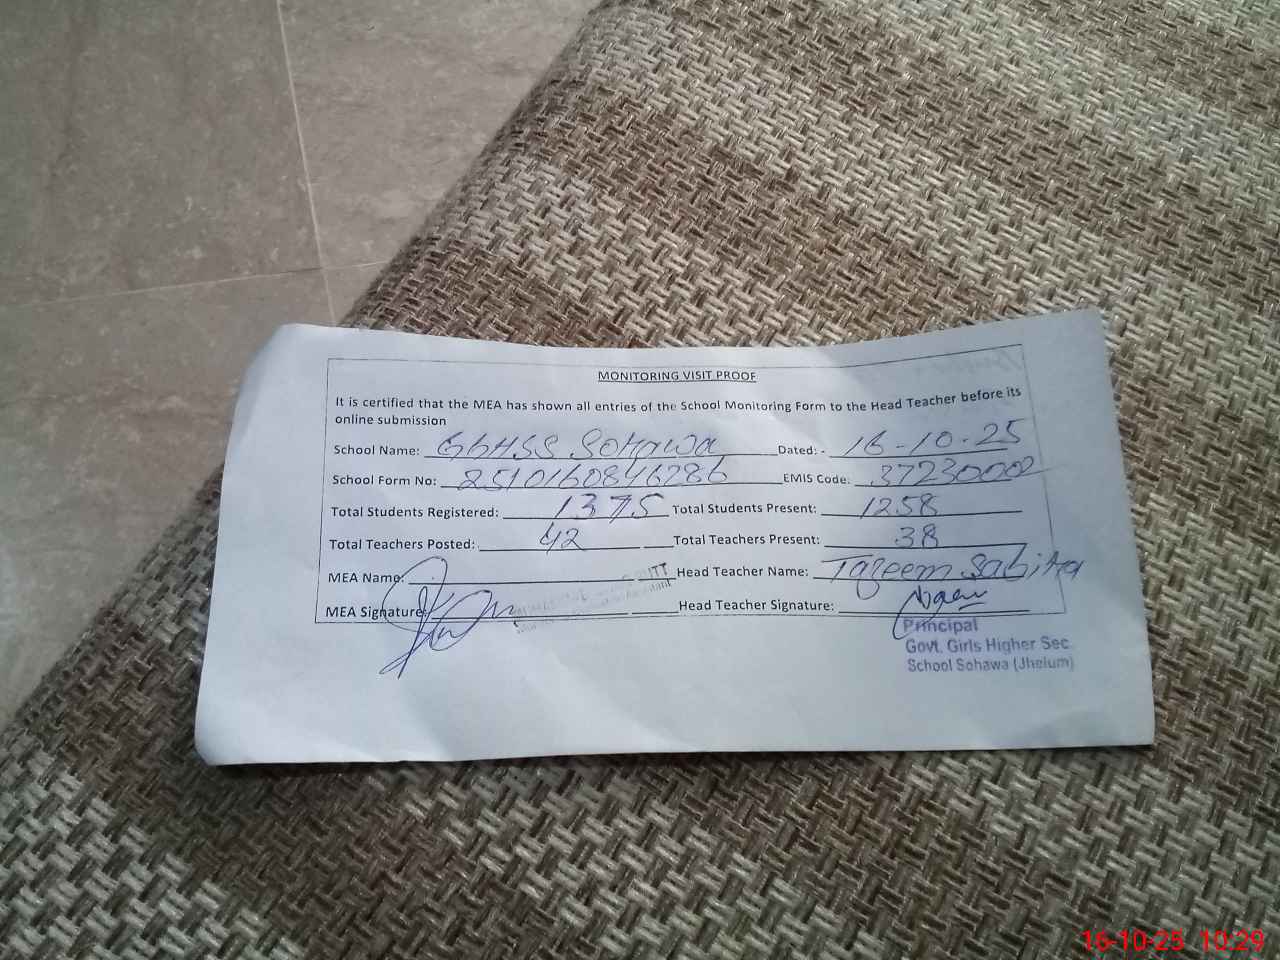 MONITORING VISIT PROOF
It is certified that the MEA has shown all entries of the School Monitoring Form to the Head Teacher before its
online submission
School Name: GGHSS SOHAWA Dated: - 16-10-25
School Form No: 2510160846286 EMIS Code: 37230002
Total Students Registered: 1375 Total Students Present: 1258
Total Teachers Posted: 42 Total Teachers Present: 38
MEA Name: Head Teacher Name: Tazeem Sabiha
MEA Signature: Head Teacher Signature:
Principal
Govt. Girls Higher Sec
School Sohawa (Jhelum)
16-10-25 10:29